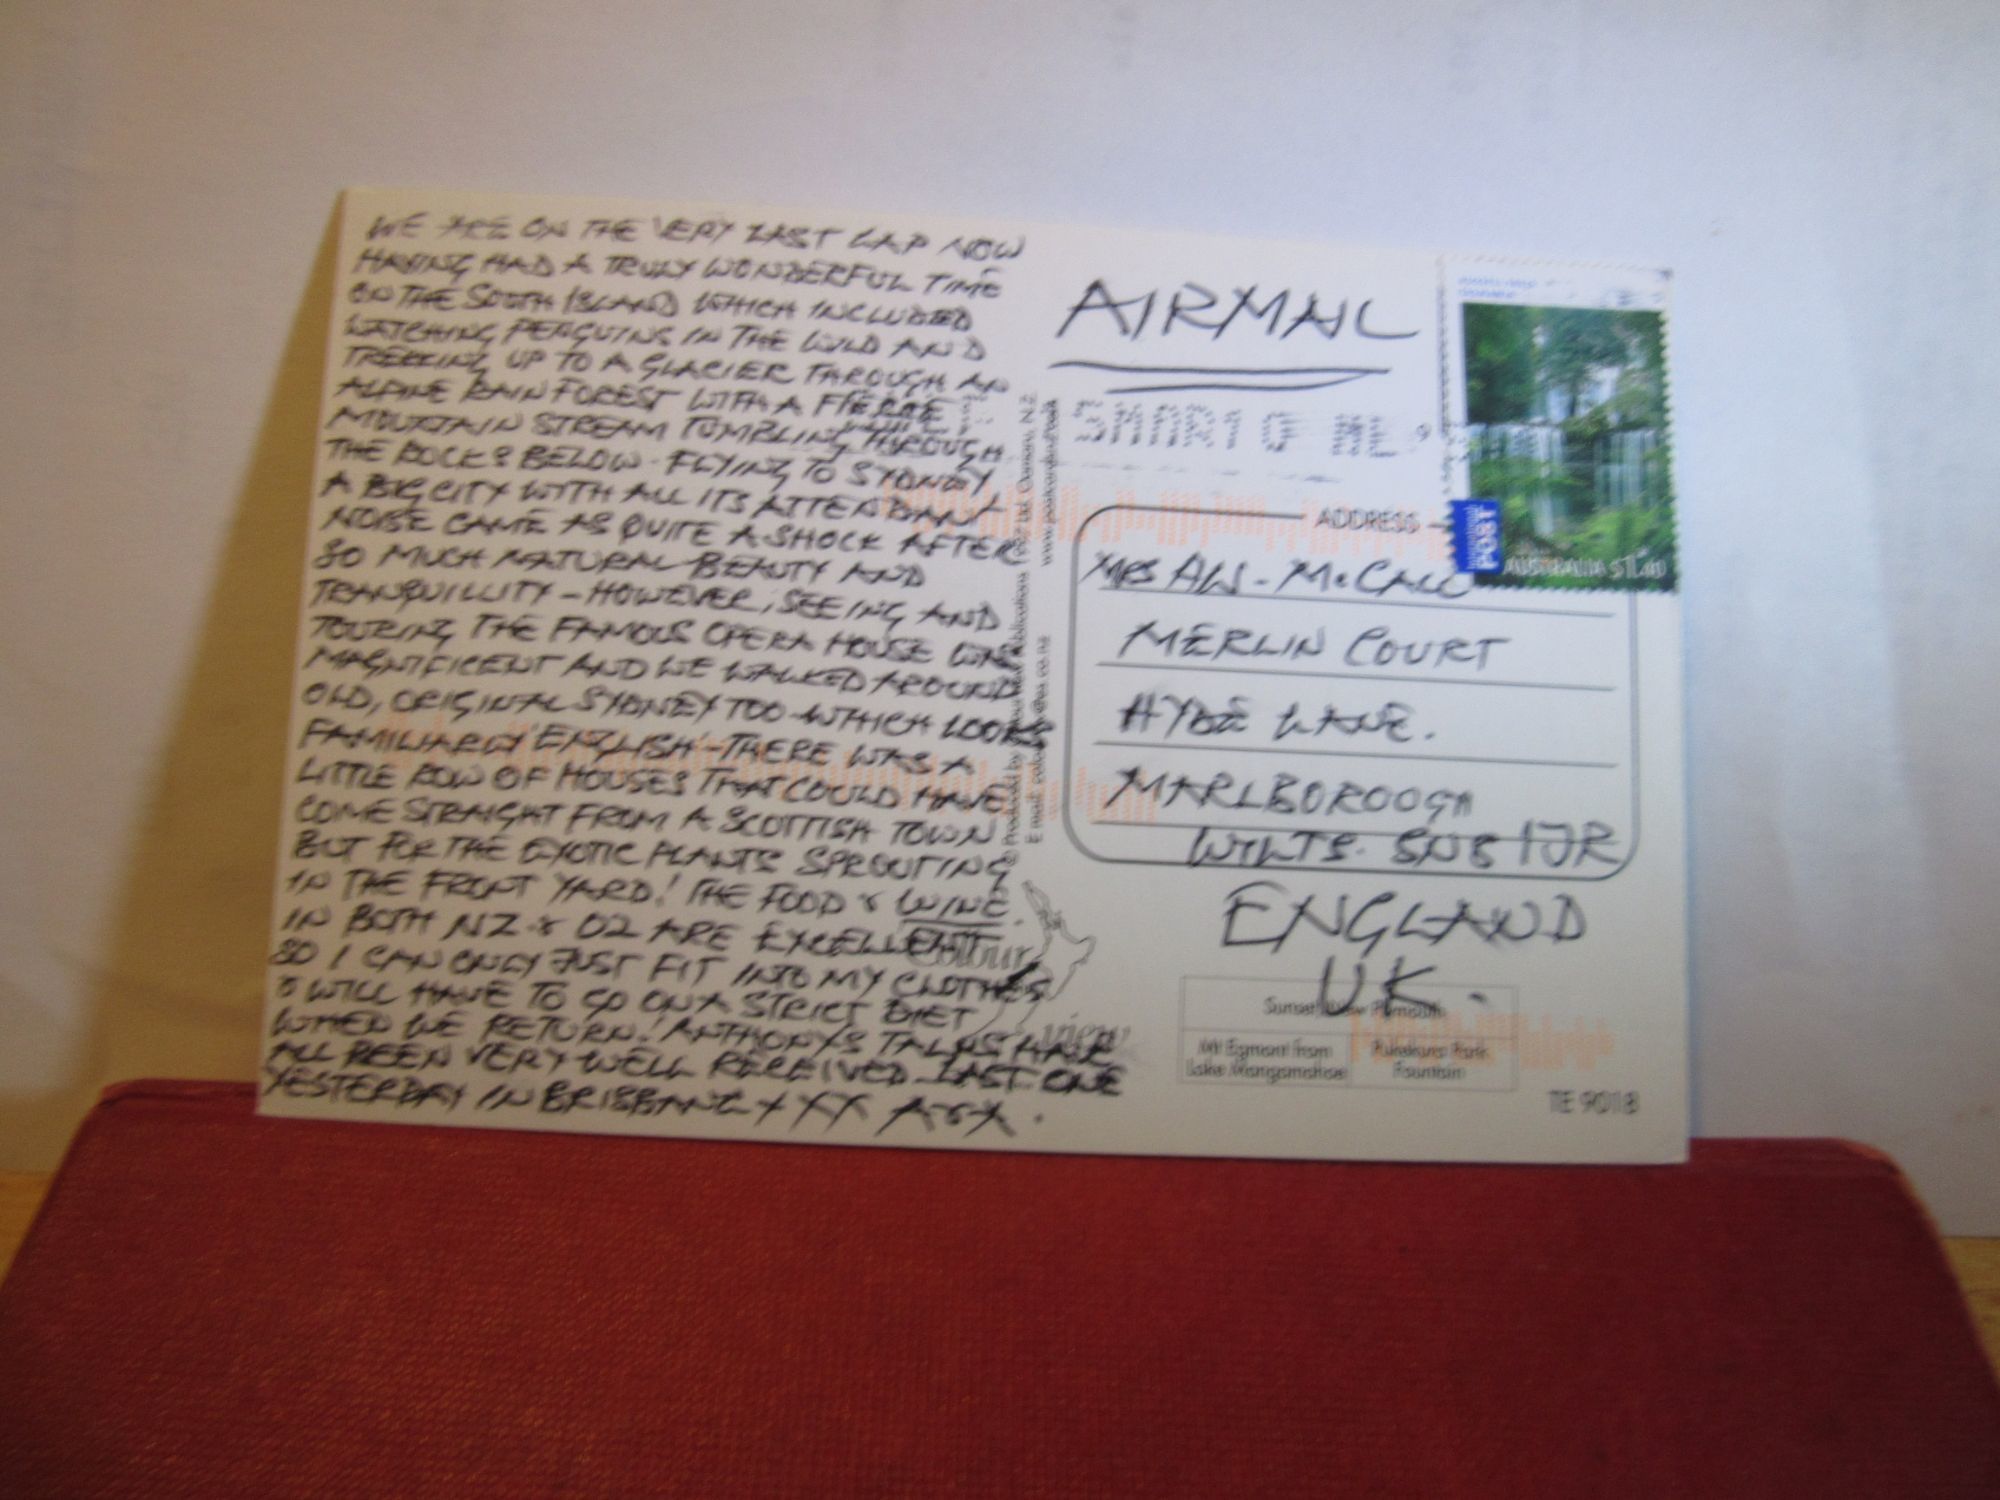 WE ARE ON THE VERY LAST LAP NOW
HAVING HAD A TRULY WONDERFUL TIME
ON THE SOUTH ISLAND WHICH INCLUDED
WATCHING PENGUINS IN THE WILD AND
TREKKING UP TO A GLACIER THROUGH AN
ALPINE RAIN FOREST WITH A FIERCE
MOUNTAIN STREAM TUMBLING THROUGH
THE ROCKS BELOW. FLYING TO SYDNEY,
A BIG CITY WITH ALL ITS ATTENDANT
NOISE CAME AS QUITE A SHOCK AFTER
SO MUCH NATURAL BEAUTY AND
TRANQUILLITY - HOWEVER, SEEING AND
TOURING THE FAMOUS OPERA HOUSE WAS
MAGNIFICENT AND WE WALKED AROUND
OLD, ORIGINAL SYDNEY TOO WHICH LOOKS
FAMILIARLY 'ENGLISH' - THERE WAS A
LITTLE ROW OF HOUSES THAT COULD HAVE
COME STRAIGHT FROM A SCOTTISH TOWN
BUT FOR THE EXOTIC PLANTS SPROUTING
IN THE FRONT YARD! THE FOOD & WINE
IN BOTH NZ & OZ ARE EXCELLENT
SO I CAN ONLY JUST FIT INTO MY CLOTHES
& WILL HAVE TO GO ON A STRICT DIET
WHEN WE RETURN! ANTHONY'S TALKS HAVE
ALL BEEN VERY WELL RECEIVED - LAST ONE
YESTERDAY IN BRISBANE XXX A & A.
Colour
view
E mail:
www.postcard
AIRMAIL
POST
AUSTRALIA $1.40
ADDRESS
MRS A.W. McCALL
MERLIN COURT
HYDE LANE.
MARLBOROUGH
WILTS. SN8 1JR
ENGLAND
UK.
Sunset, New Plymouth
Mt Egmont from
Lake Mangamahoe
Pukekura Park
Fountain
TE 9018